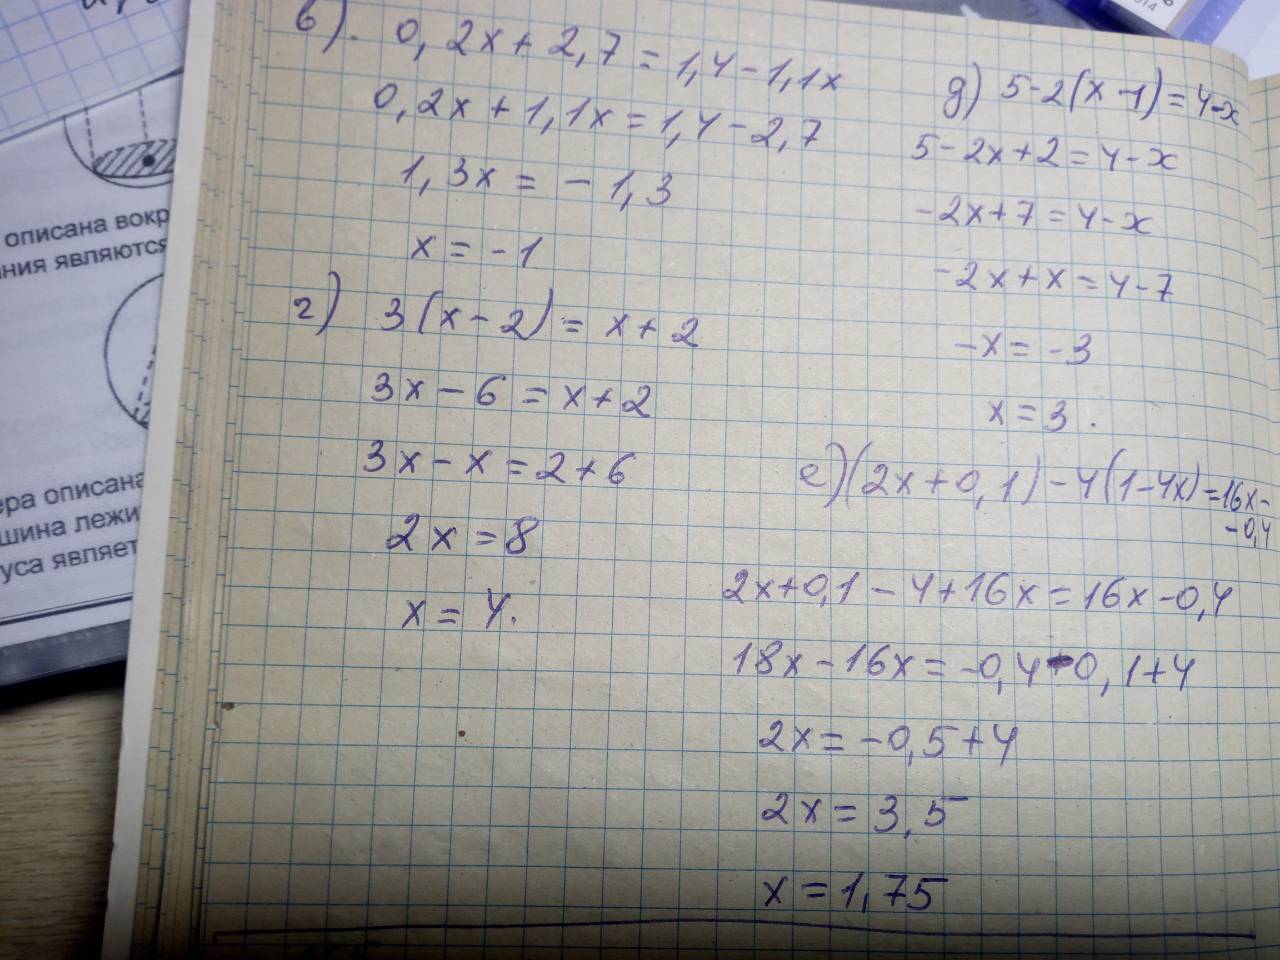 в). 0,2x+2,7=1,4-1,1x
0,2x+1,1x=1,4-2,7
1,3x=-1,3
x=-1
г) 3(x-2)=x+2
3x-6=x+2
3x-x=2+6
2x=8
x=4.
д) 5-2(x-1)=4-x
5-2x+2=4-x
-2x+7=4-x
-2x+x=4-7
-x=-3
x=3.
е)(2x+0,1)-4(1-4x)=16x-
-0,4
2x+0,1-4+16x=16x-0,4
18x-16x=-0,4-0,1+4
2x=-0,5+4
2x=3,5
x=1,75
описана вокр
ния являются
ера описана
шина лежи
уса являет